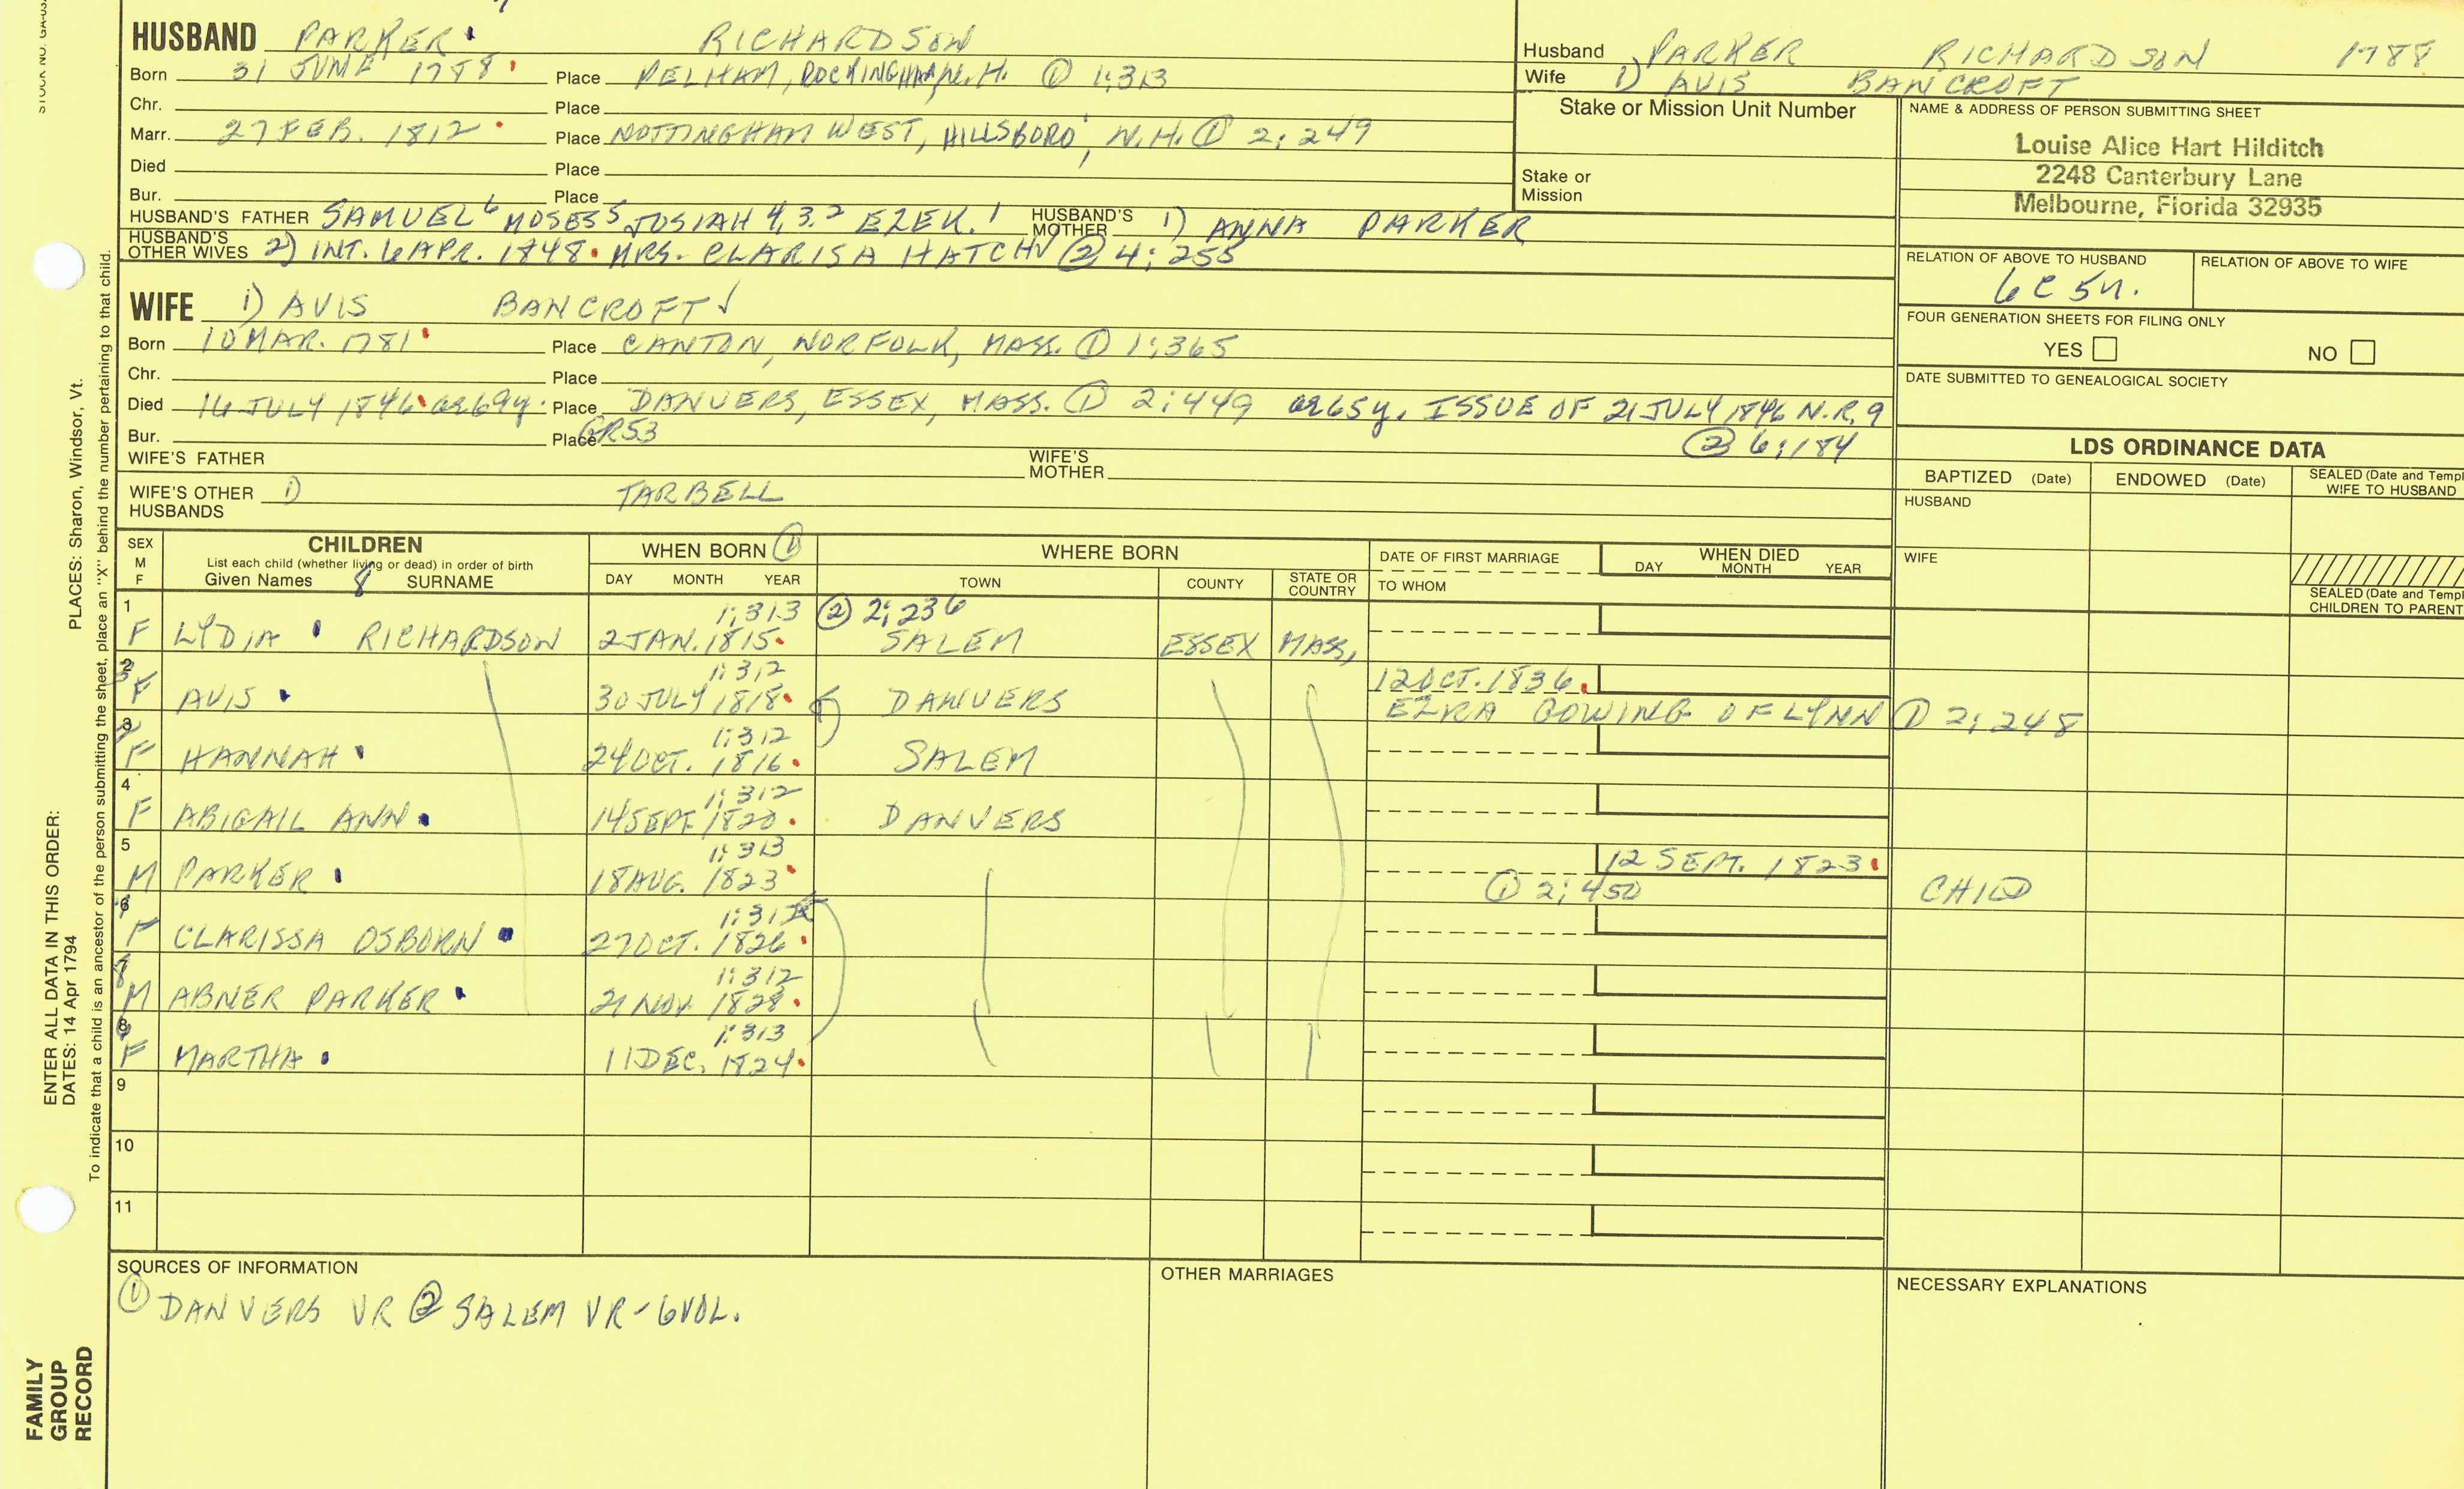 STOCK NO. GA-03
HUSBAND PARKER RICHARDSON
Born 31 JUNE 1788 Place PELHAM, ROCKINGHAM, N.H. ① 1:313
Chr. Place
Marr. 27 FEB. 1812 Place NOTTINGHAM WEST, HILLSBORO, N.H. ① 2:249
Died Place
Bur. Place
HUSBAND'S FATHER SAMUEL 6 MOSES 5 JOSIAH 4,3,2 EZEK. 1 HUSBAND'S MOTHER 1) ANNA PARKER
HUSBAND'S OTHER WIVES 2) INT. 6 APR. 1848. MRS. CLARISA HATCH ② 4:255
Husband PARKER RICHARDSON 1788
Wife 1) AVIS BANCROFT
Stake or Mission Unit Number
Stake or Mission
NAME & ADDRESS OF PERSON SUBMITTING SHEET
Louise Alice Hart Hilditch
2248 Canterbury Lane
Melbourne, Florida 32935
RELATION OF ABOVE TO HUSBAND RELATION OF ABOVE TO WIFE
6C 5R.
FOUR GENERATION SHEETS FOR FILING ONLY
YES NO
DATE SUBMITTED TO GENEALOGICAL SOCIETY
WIFE 1) AVIS BANCROFT
Born 10 MAR. 1781 Place CANTON, NORFOLK, MASS. ① 1:365
Chr. Place
Died 16 JULY 1846 ae69y. Place DANVERS, ESSEX, MASS. ① 2:449 ae65y. ISSUE OF 21 JULY 1846 N.R. 9
Bur. Place GR53 ② 6:184
WIFE'S FATHER WIFE'S MOTHER
WIFE'S OTHER HUSBANDS 1) TARBELL
LDS ORDINANCE DATA
BAPTIZED (Date) ENDOWED (Date) SEALED (Date and Templ
WIFE TO HUSBAND
HUSBAND
WIFE
SEALED (Date and Templ
CHILDREN TO PARENT
SEX M F CHILDREN WHEN BORN ① WHERE BORN DATE OF FIRST MARRIAGE WHEN DIED
List each child (whether living or dead) in order of birth
Given Names 8 SURNAME DAY MONTH YEAR TOWN COUNTY STATE OR COUNTRY TO WHOM DAY MONTH YEAR
1 1:313 ② 2:236
F LYDIA RICHARDSON 2 JAN. 1815 SALEM ESSEX MASS.
2 3 1:312 12 OCT. 1836
F AVIS 30 JULY 1818 DANVERS EZRA GOWING OF LYNN ① 2:248
3 2 1:312
F HANNAH 24 OCT. 1816 SALEM
4 1:312
F ABIGAIL ANN 14 SEPT. 1820 DANVERS
5 1:313 12 SEPT. 1823
M PARKER 18 AUG. 1823 ① 2:450 CHILD
6 7 1:312
F CLARISSA OSBORN 27 OCT. 1826
7 8 1:312
M ABNER PARKER 21 NOV. 1828
8 6 1:313
F MARTHA 11 DEC. 1824
9
10
11
SOURCES OF INFORMATION
① DANVERS VR ② SALEM VR - 6 VOL.
OTHER MARRIAGES
NECESSARY EXPLANATIONS
PLACES: Sharon, Windsor, Vt.
To indicate that a child is an ancestor of the person submitting the sheet, place an "X" behind the number pertaining to that child.
ENTER ALL DATA IN THIS ORDER:
DATES: 14 Apr 1794
FAMILY
GROUP
RECORD